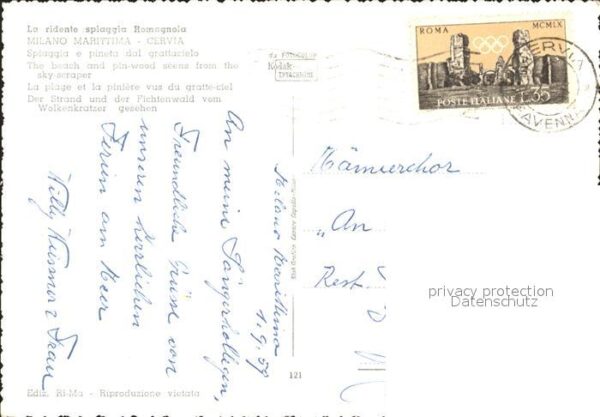 La ridente spiaggia Romagnola
MILANO MARITTIMA - CERVIA
Spiaggia e pineta dal grattacielo
The beach and pin-wood seens from the
sky-scraper
La plage et la pinière vus du gratte-ciel
Der Strand und der Fichtenwald vom
Wolkenkratzer gesehen
da FOTOCOLOR
Kodak
EKTACHROME
ROMA
MCMLX
POSTE ITALIANE
L. 35
CERVIA
RAVENNA
Milano Marittima
1.9.59
An meine Sängerkollegen,
Freundliche Grüsse von
unseren herrlichen
Ferien am Meer
Willy u Frau
Männerchor
"An
Rest.
D
privacy protection
Datenschutz
121
Ediz. Bi-Ma - Riproduzione vietata